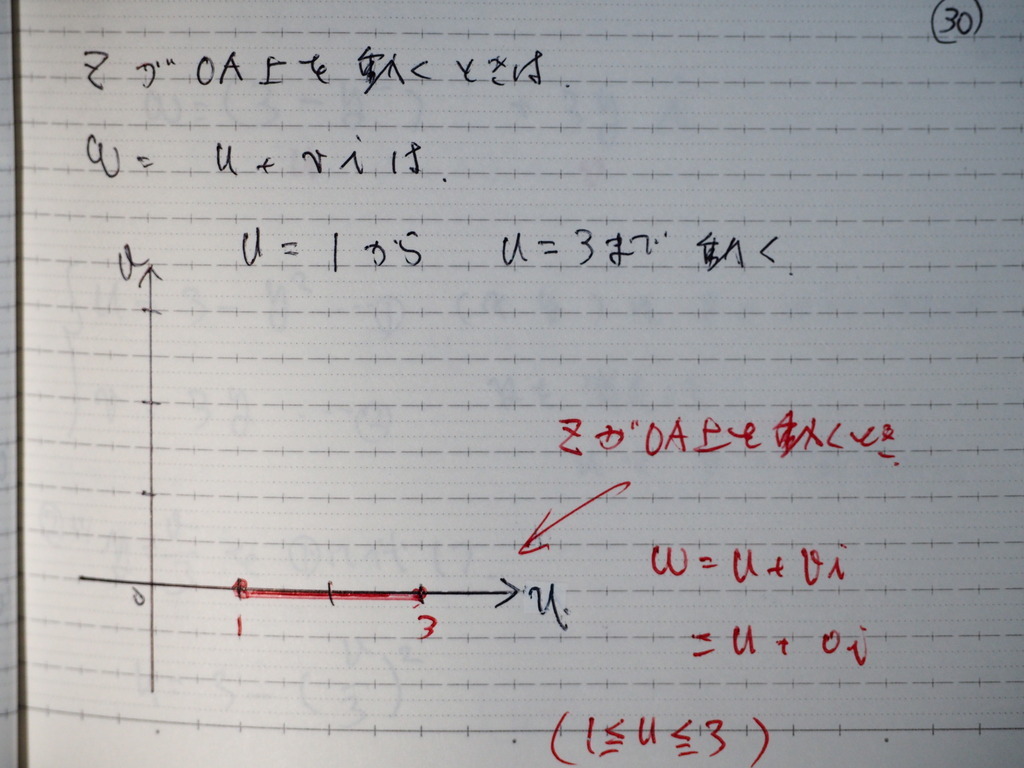 30
zがOA上を動くときは.
w = u + vi は.
u = 1から u = 3まで動く.
v
zがOA上を動くとき.
w = u + vi
0
u.
1
3
= u + 0i
(1≦u≦3)